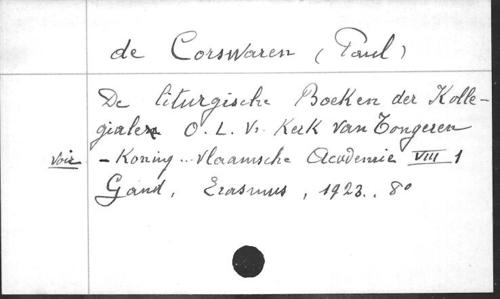 de Corswaren (Paul)
De liturgische Boeken der Kolle-
giale O. L. Vr. Kerk van Tongeren
voir - Koning .. Vlaamsche Academie VIII 1
Gand, Erasmus, 1923.. 8°